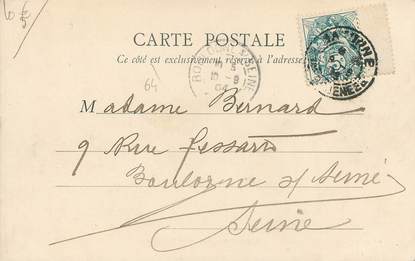 CARTE POSTALE
Ce côté est exclusivement réservé à l'adresse
64
Madame Bernard
9 Rue Fessart
Boulogne s/ Seine
Seine